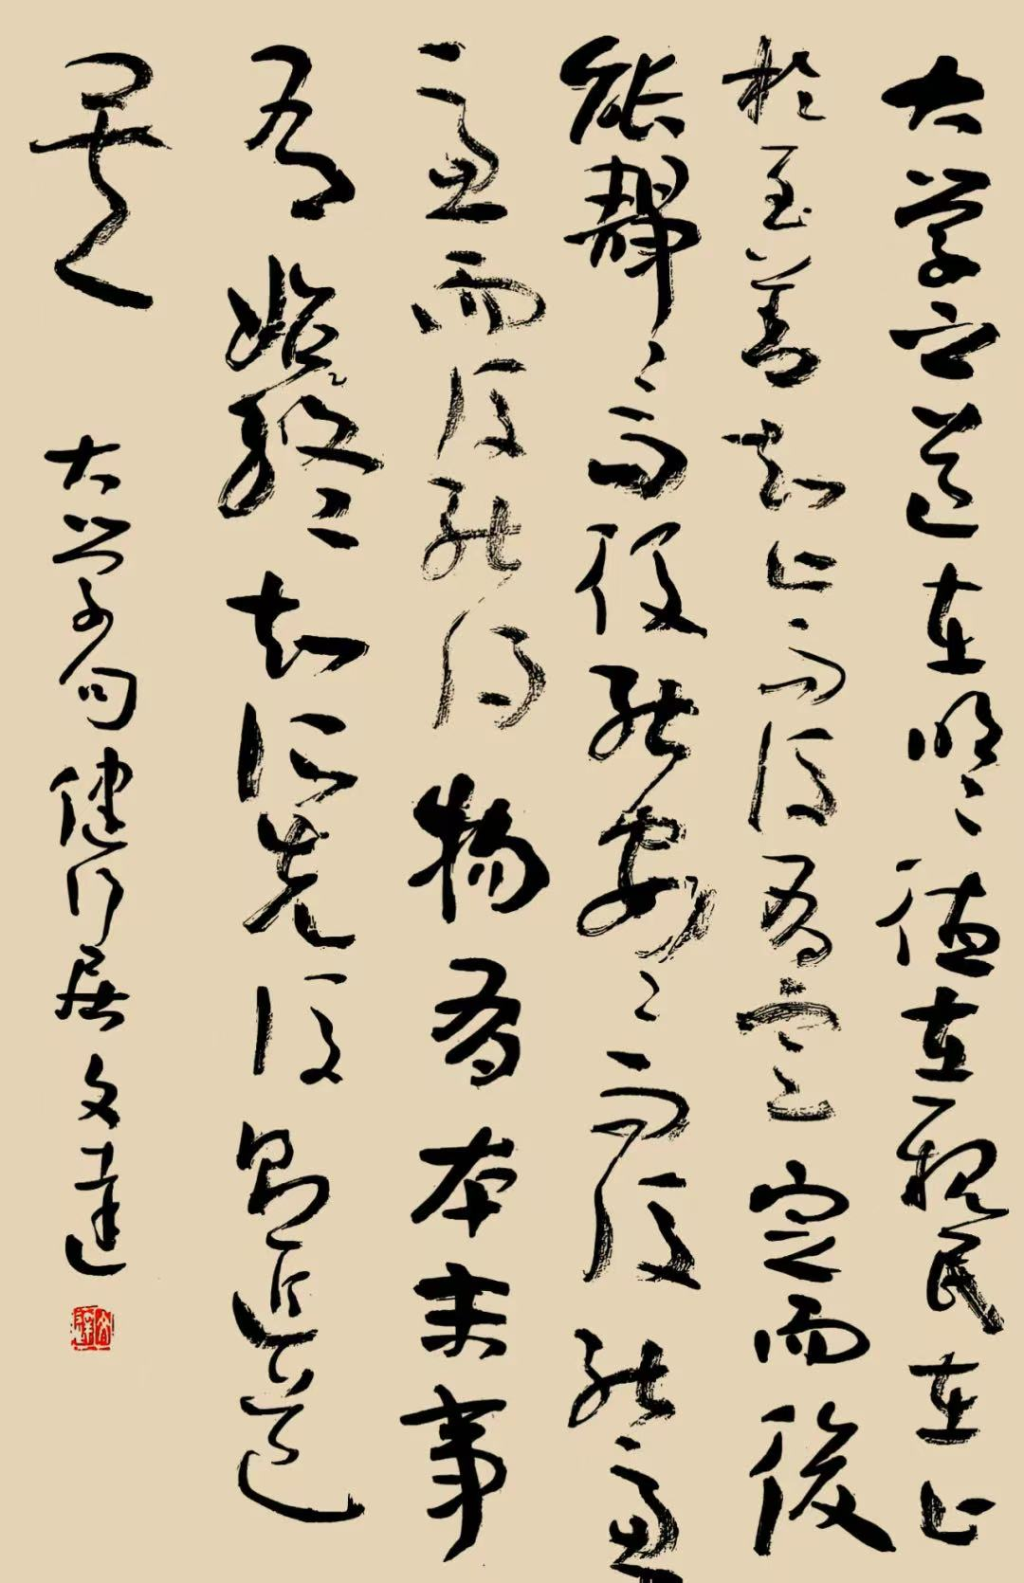 大学之道在明〻德在親民在止
於至善知止而后有定定而後
能靜〻而後能安〻而后能慮
〻慮而后能得物有本末事
有始終〻知所先后則近道
矣
大学句健行居文達
文達